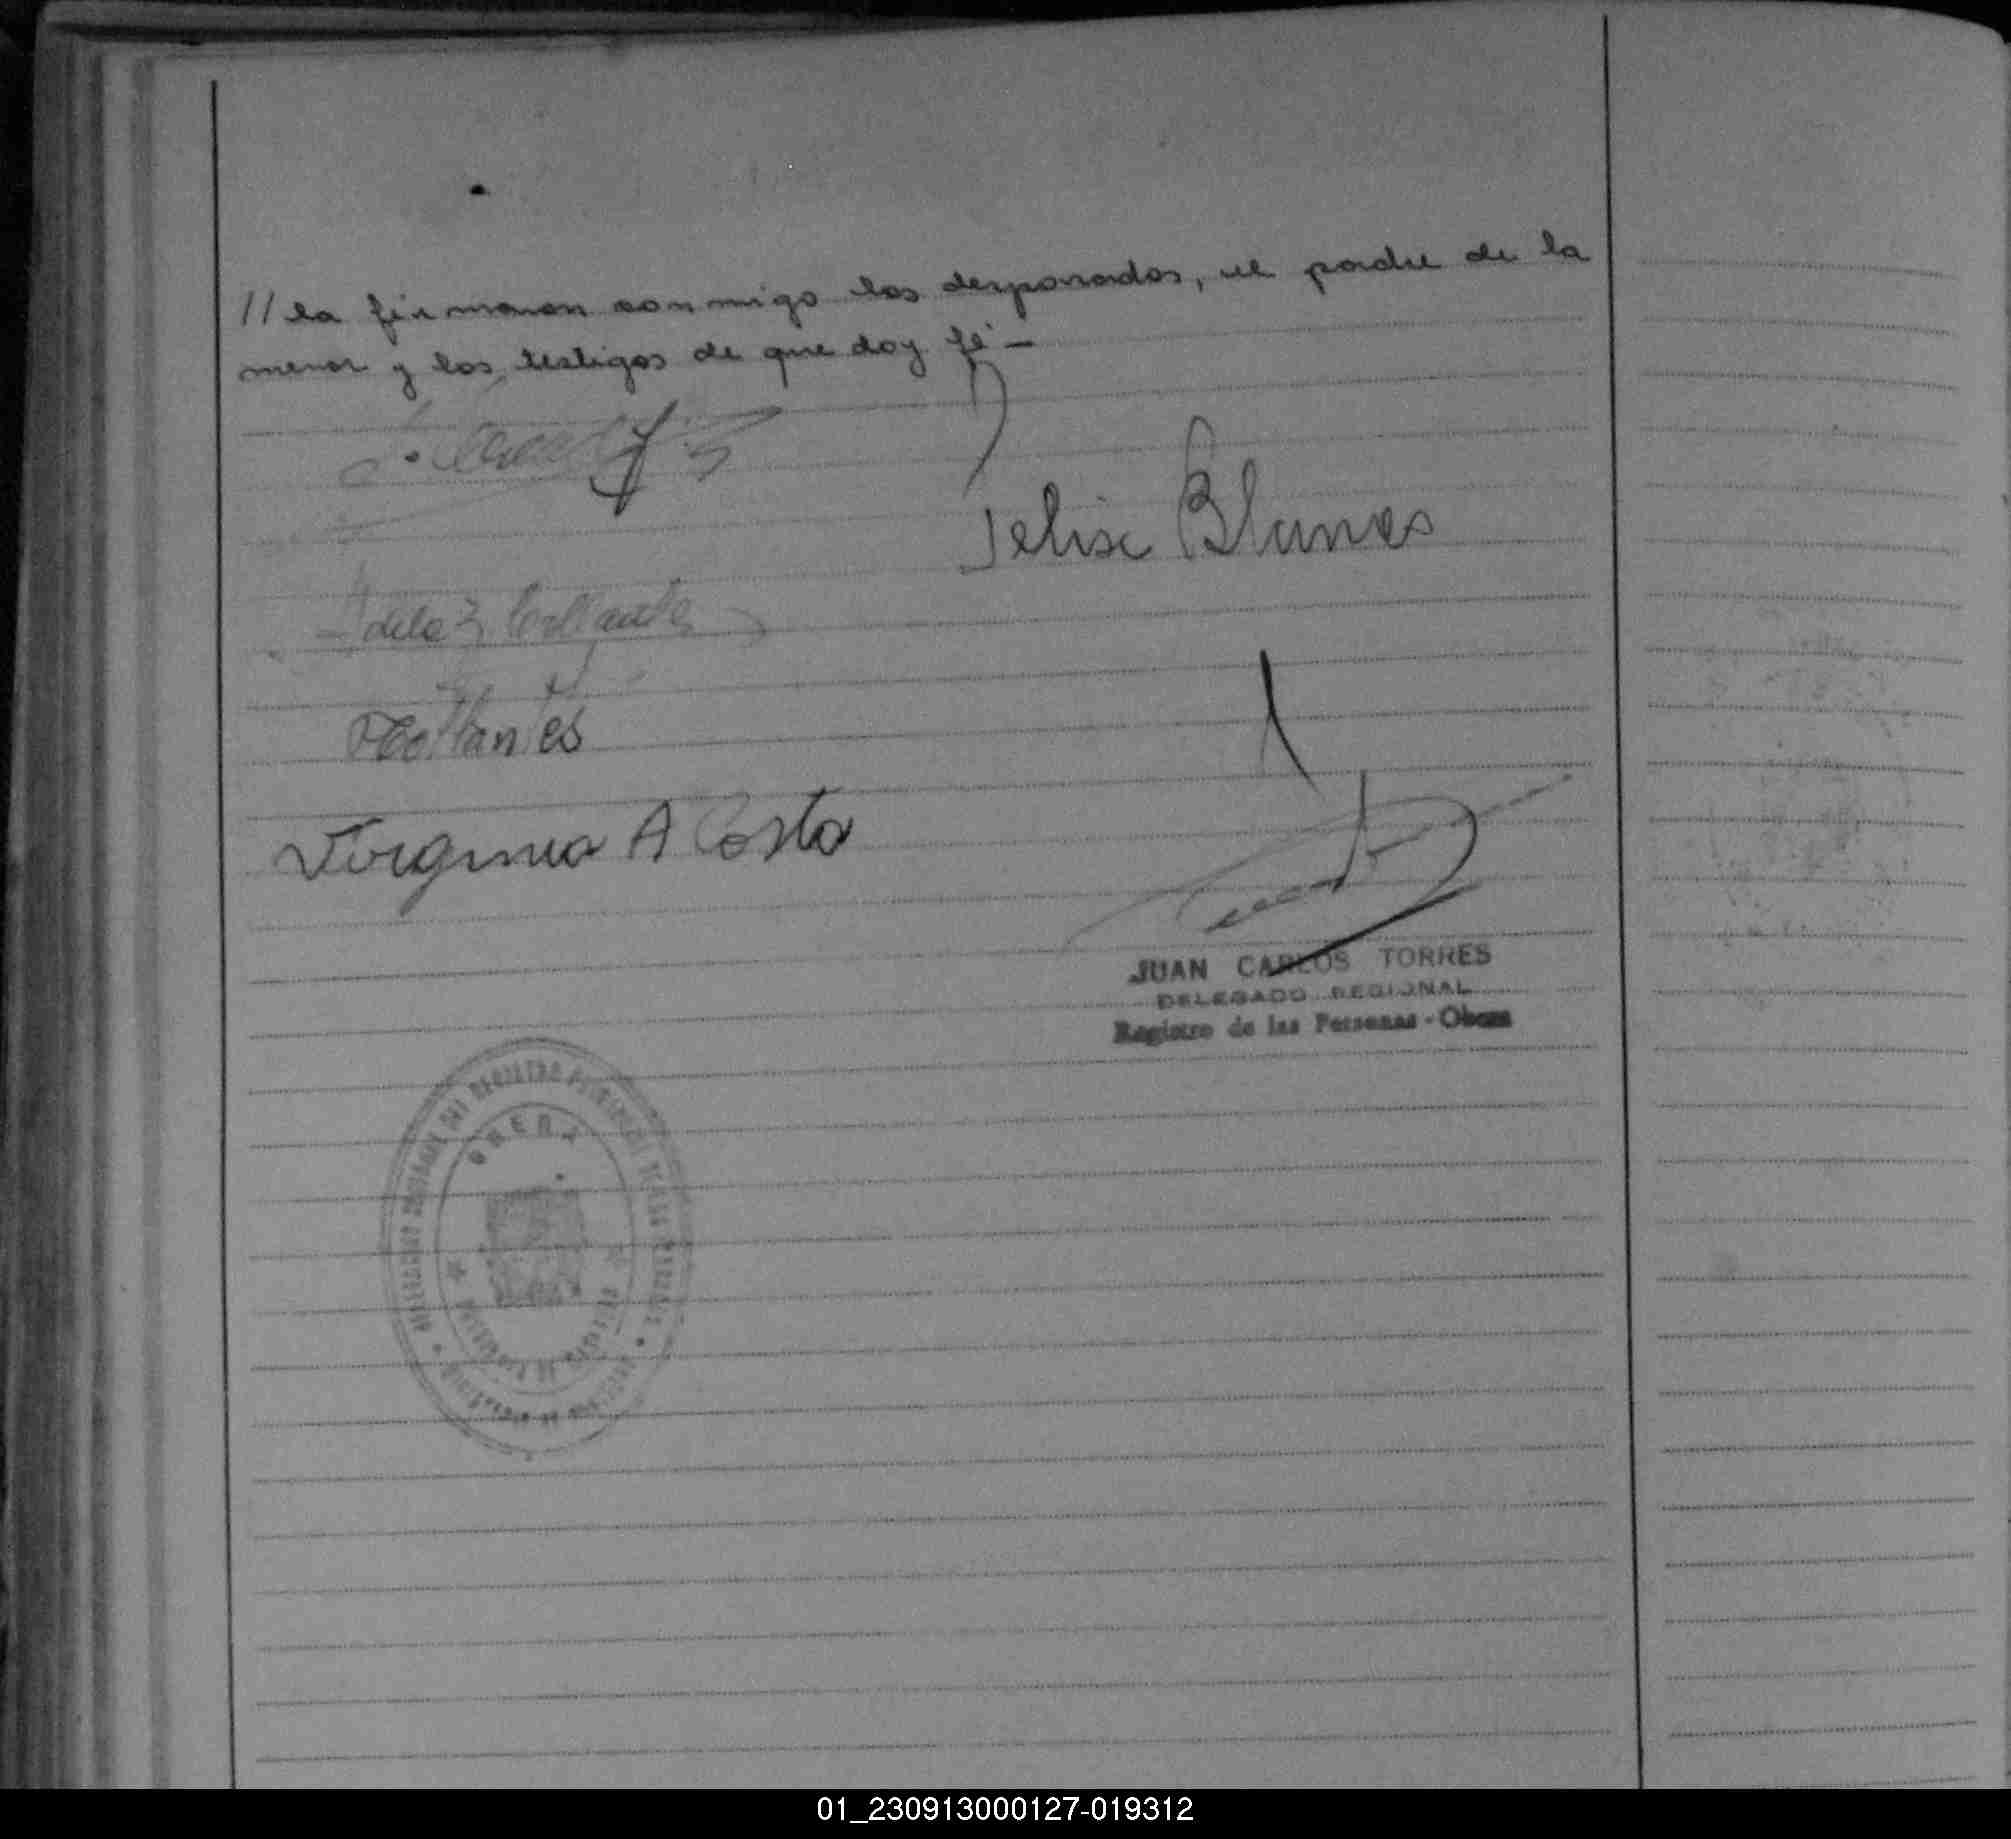 // la firmaron conmigo los desposados, el padre de la
menor y los testigos de que doy fé —
Felix Blanes
Adela Collante
Collantes
Virginia A Costa
JUAN CARLOS TORRES
DELEGADO REGIONAL
Registro de las Personas - Obera
OBERA
01_230913000127-019312